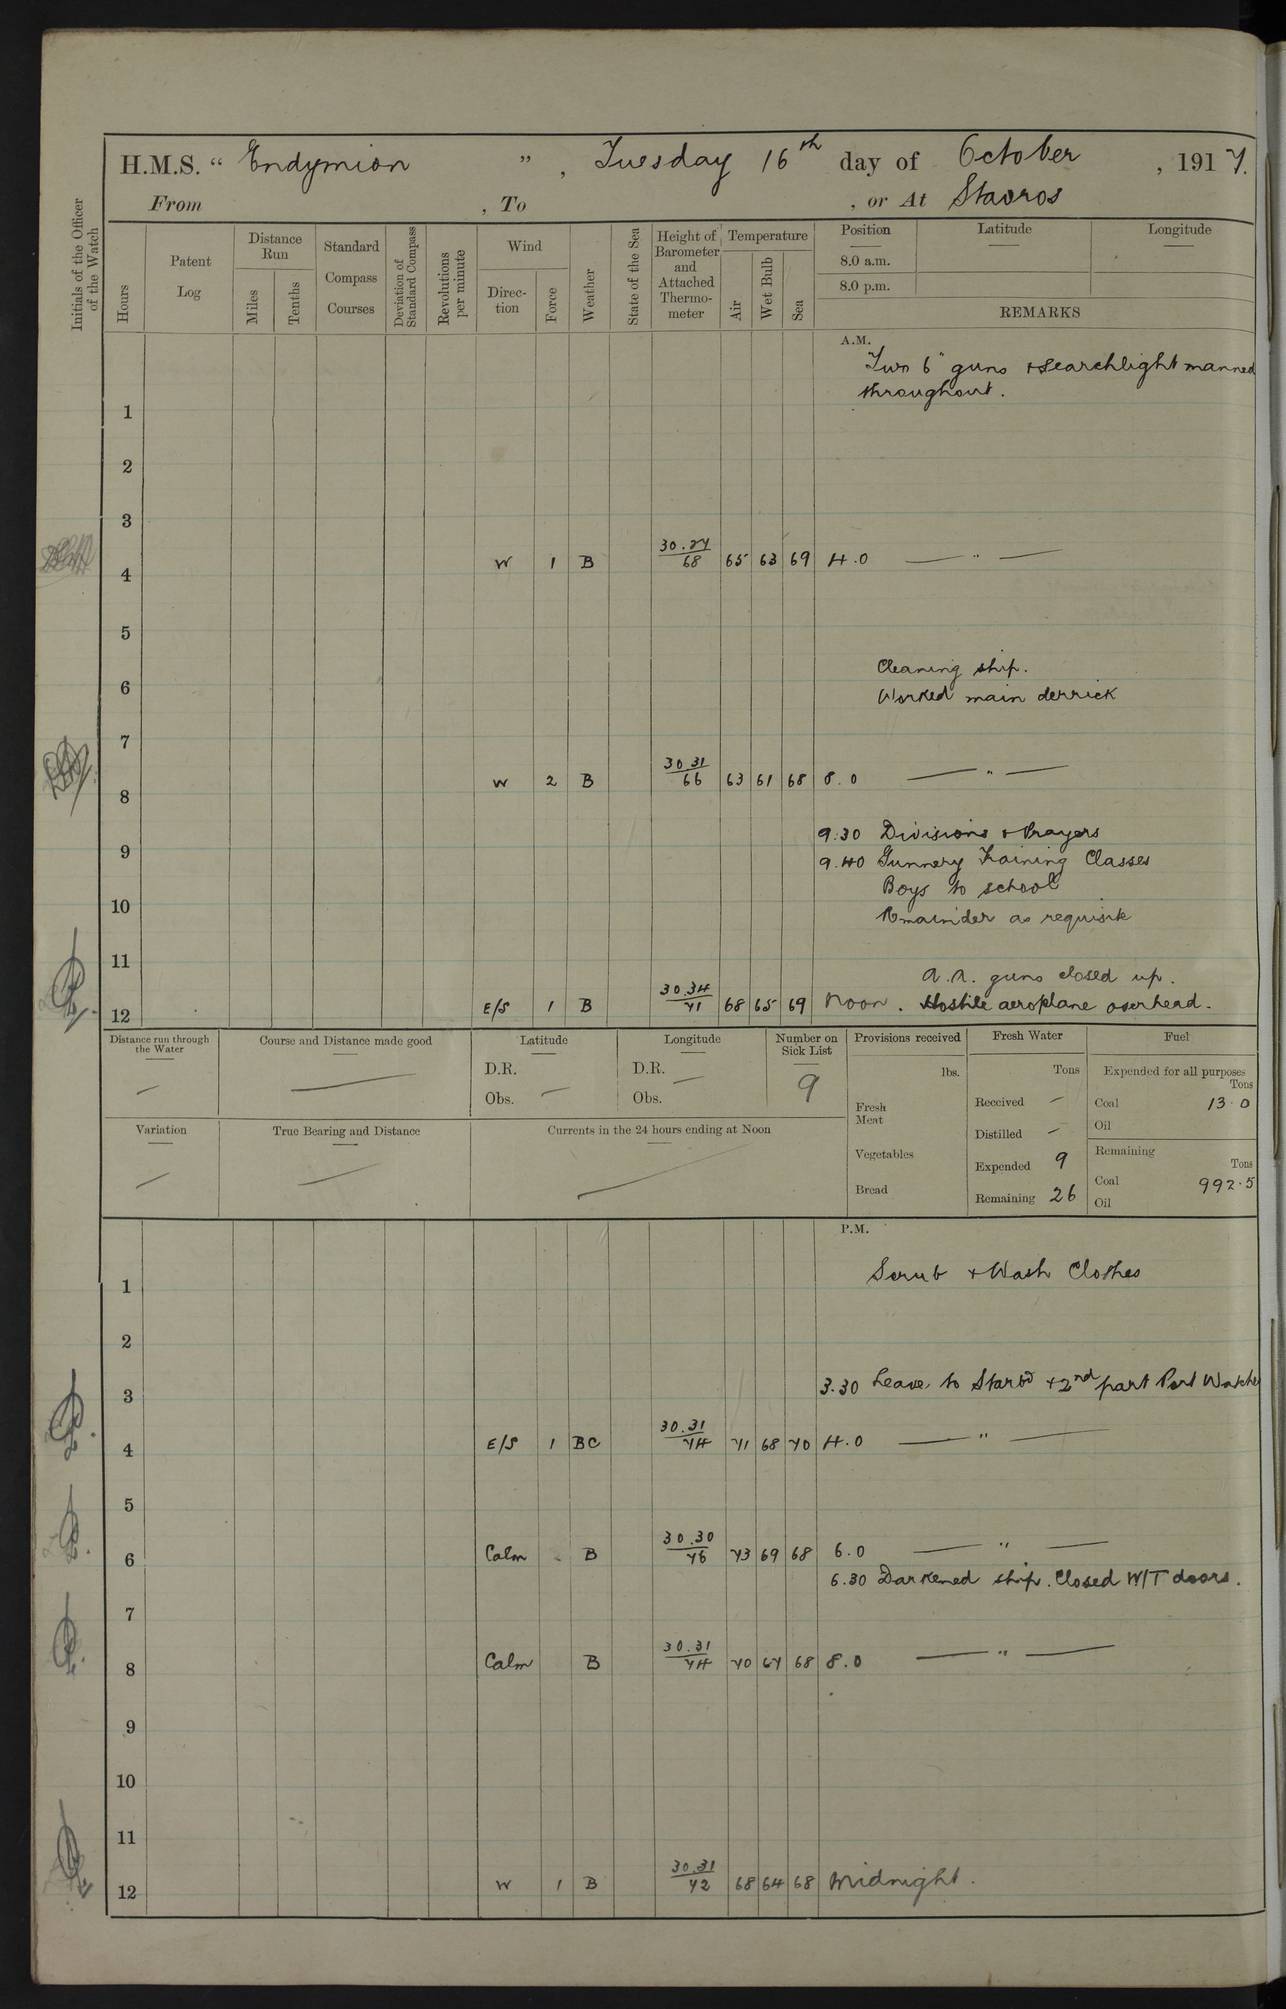 H.M.S. “ Endymion ” , Tuesday 16th day of October , 1917.
From , To , or At Stavros
Initials of the Officer of the Watch
Hours
Patent Log
Distance Run
Miles
Tenths
Standard Compass Courses
Deviation of Standard Compass
Revolutions per minute
Wind
Direction
Force
Weather
State of the Sea
Height of Barometer and Attached Thermometer
Temperature
Air
Wet Bulb
Sea
Position
8.0 a.m.
8.0 p.m.
Latitude
Longitude
REMARKS
A.M.
Two 6" guns + searchlight manned
throughout.
1
2
3
4 W 1 B 30.27/68 65 63 69 4.0 — " —
5
Cleaning ship.
6 Worked main derrick
7
8 W 2 B 30 31/66 63 61 68 8.0 — " —
9.30 Divisions + Prayers
9 9.40 Gunnery Training Classes
Boys to school
10 Remainder as requisite
11
A.A. guns closed up.
12 E/S 1 B 30.34/71 68 65 69 Noon. Hostile aeroplane overhead.
Distance run through the Water —
Course and Distance made good —
Latitude
D.R.
Obs. —
Longitude
D.R. —
Obs.
Number on Sick List
9
Provisions received
lbs.
Fresh Meat
Vegetables
Bread
Fresh Water
Tons
Received —
Distilled —
Expended 9
Remaining 26
Fuel
Expended for all purposes
Tons
Coal 13.0
Oil
Remaining
Tons
Coal 992.5
Oil
Variation —
True Bearing and Distance —
Currents in the 24 hours ending at Noon —
P.M.
1 Scrub + Wash Clothes
2
3 3.30 Leave to Starbd + 2nd part Port Watches
4 E/S 1 BC 30.31/74 71 68 70 4.0 — " —
5
6 Calm B 30.30/76 73 69 68 6.0 — " —
6.30 Darkened ship. Closed W/T doors.
7
8 Calm B 30.31/74 70 67 68 8.0 — " —
9
10
11
12 W 1 B 30.31/72 68 64 68 Midnight.